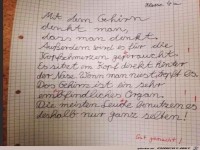 Klasse 4a
Mit dem Gehirn
denkt man,
dass man denkt.
Außerdem wird es für die
Kopfschmerzen gebraucht.
Es sitzt im Kopf direkt hinter
der Nase. Denn man niest
Das Gehirn ist ein sehr
empfindliches Organ.
Die meisten Leute benutzen es
deshalb nur ganz selten!
Gut gemacht!